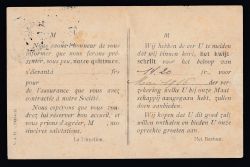 M
Nous avons l'honneur de vous
informer que nous ferons pré-
senter, sous peu, notre quittance
s'élevant à frs
pour
de l'assurance que vous avez
contracté à notre Société.
Nous espérons que vous vou-
drez lui réserver bon accueil, et
vous prions d'agréer, M
nos sincères salutations.
La Direction.
M
Wij hebben de eer U te melden
dat wij binnen kort, het kwijt-
schrift voor het beloop van
fr. voor
der ver-
zekering welke U bij onze Maat-
schappij aangegaan hebt, zullen
doen aanbieden.
Wij hopen dat U dit goed zult
willen onthalen en bieden U onze
oprechte groeten aan.
Het Bestuur.